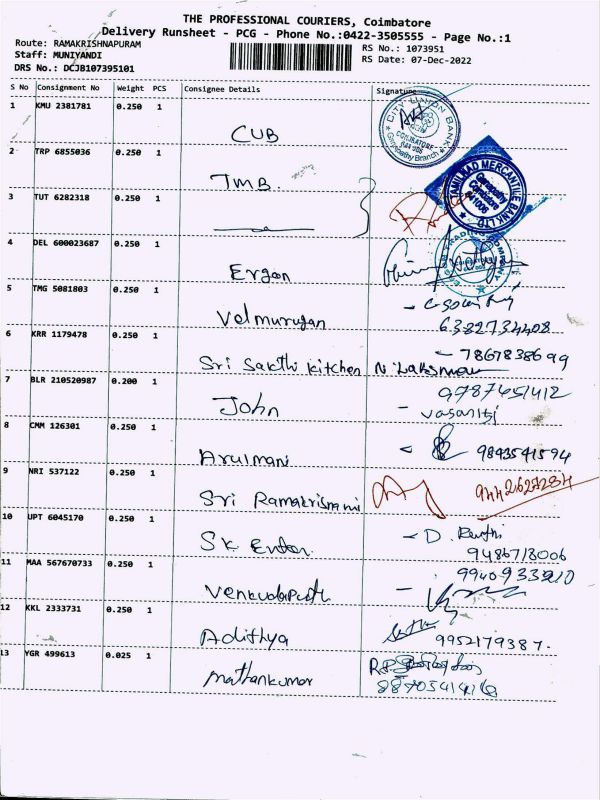 THE PROFESSIONAL COURIERS, Coimbatore
Delivery Runsheet - PCG - Phone No.:0422-3505555 - Page No.:1
Route: RAMAKRISHNAPURAM
Staff: MUNIYANDI
DRS No.: DCJB107395101
RS No.: 1073951
RS Date: 07-Dec-2022
S No Consignment No Weight PCS Consignee Details Signature
1 KMU 2381781 0.250 1
CUB
CITY UNION BANK
COIMBATORE
2 TRP 6855036 0.250 1
TMB
TAMILNAD MERCANTILE BANK LTD
3 TUT 6282318 0.250 1
4 DEL 600023687 0.250 1
Ergon
5 TMG 5081803 0.250 1
Velmurugan
6382734408
6 KRR 1179478 0.250 1
Sri Sakthi kitchen
7867838699
7 BLR 210520987 0.200 1
John
9787451412
8 CMM 126301 0.250 1
Arulmani
9843541594
9 NRI 537122 0.250 1
Sri Ramakrisnami
10 UPT 6045170 0.250 1
SK Enter
9486713006
11 MAA 567670733 0.250 1
9940933210
12 KKL 2333731 0.250 1
Adithya
9952179387.
13 YGR 499613 0.025 1
Mathankumar